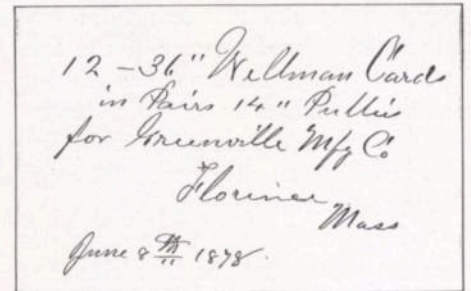 12 – 36" Wellman Cards
in Pairs 14" Pullies
for Greenville Mfg Co
Florence
Mass
June 8th 1878